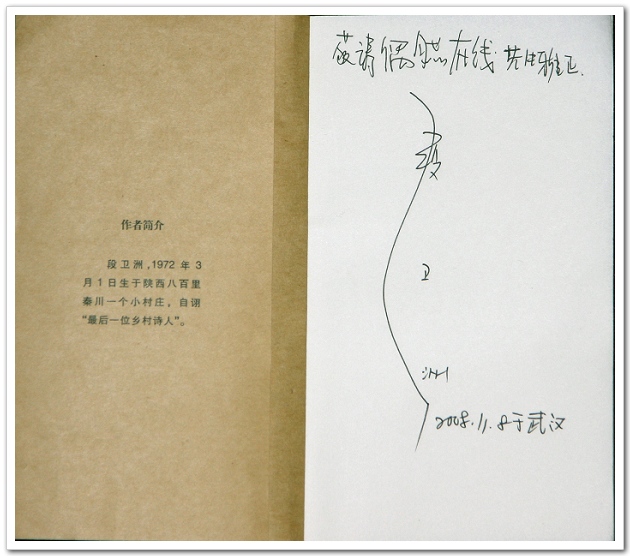 作者简介
段卫洲,1972 年 3
月1日生于陕西八百里
秦川一个小村庄，自诩
“最后一位乡村诗人”。
敬请偶然在线 先生雅正.
段
卫
洲
2008.11.8于武汉